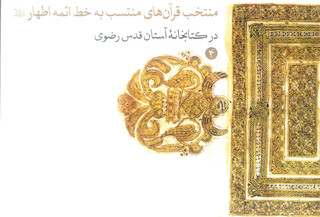 منتخب قرآن‌های منتسب به خط ائمه اطهار
در کتابخانهٔ آستان قدس رضوی
۲